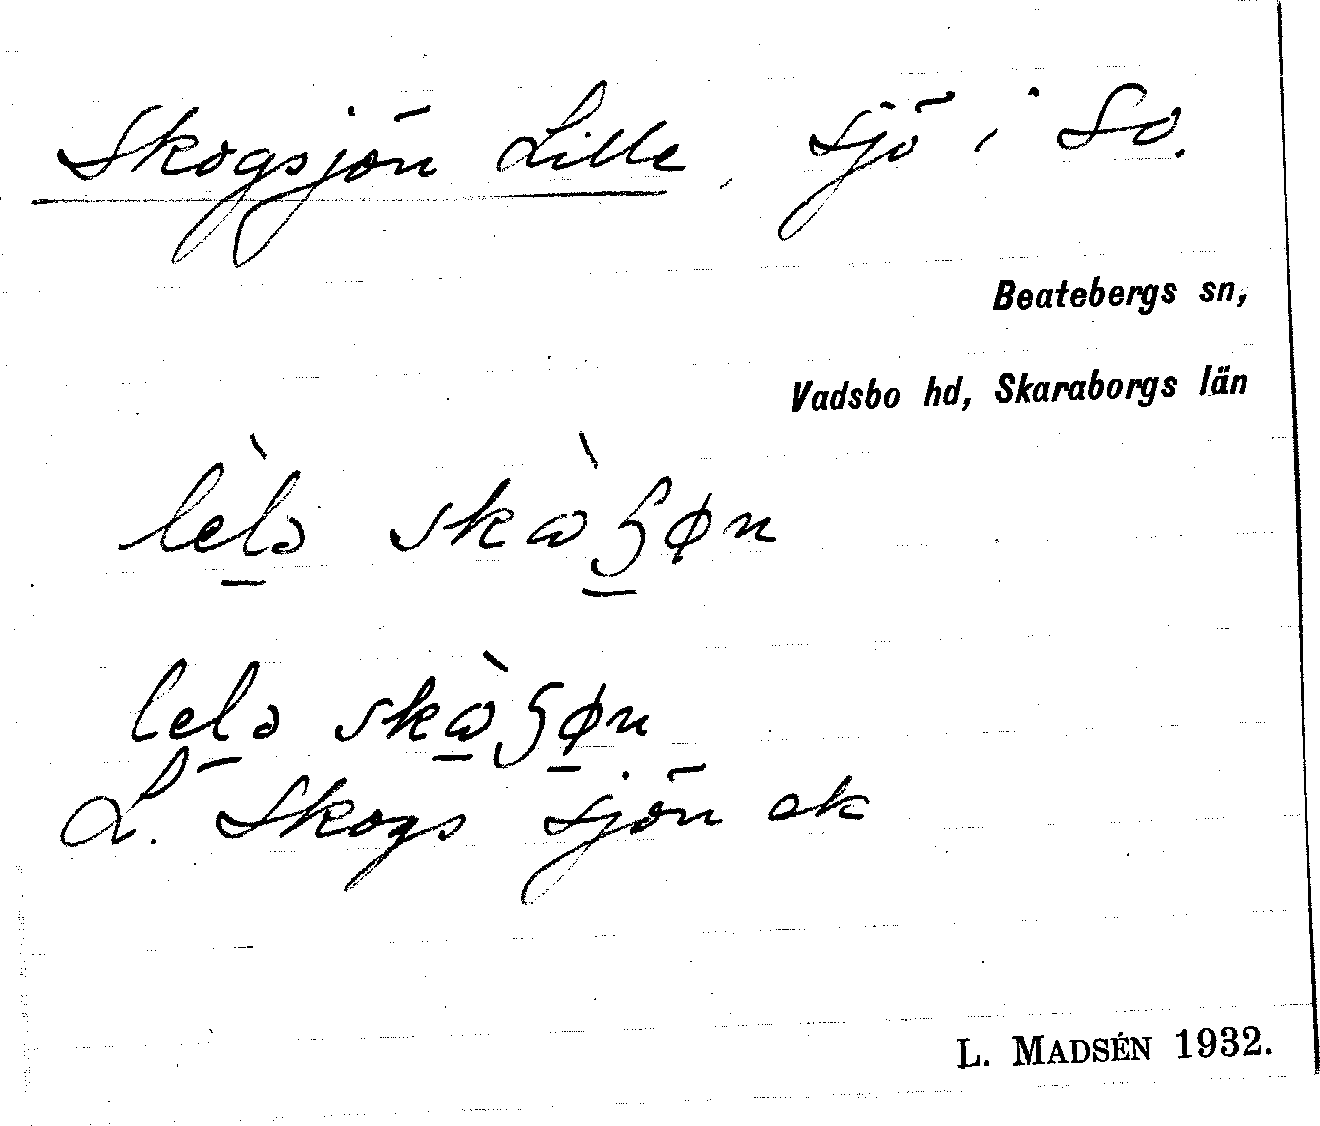 Skogsjön Lille, sjö i So.
Beatebergs sn,
Vadsbo hd, Skaraborgs län
lèlə skὼξøn
lelə skὼξøn
L. Skogssjön ek
L. MADSÉN 1932.